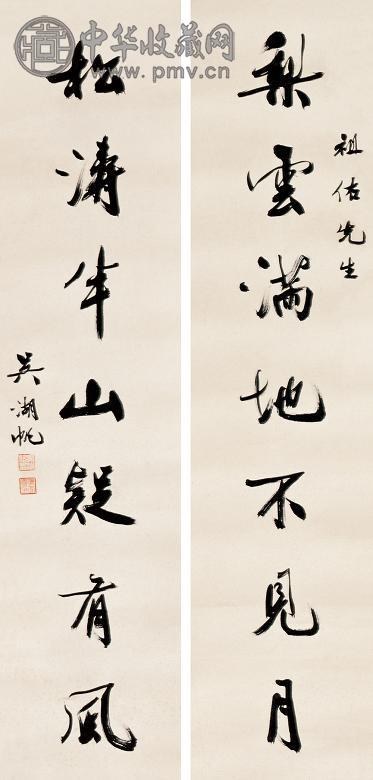 梨雲满地不見月
祖佑先生
松濤半山疑有風
吴湖帆
中华收藏网
www.pmv.cn